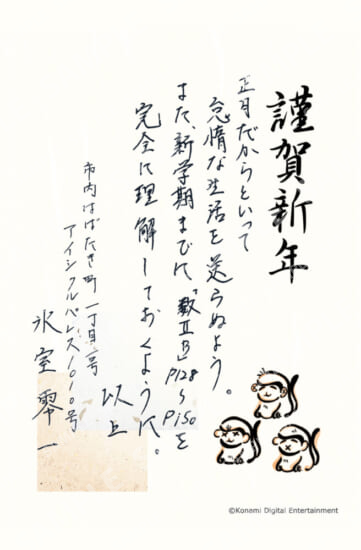 謹賀新年
正月だからといって
怠惰な生活を送らぬよう。
また、新学期までに「数ⅡB」P128〜P150を
完全に理解しておくように。
以上
市内はばたき町一丁目一号
アイシクルパレス1010号
氷室零一
©Konami Digital Entertainment